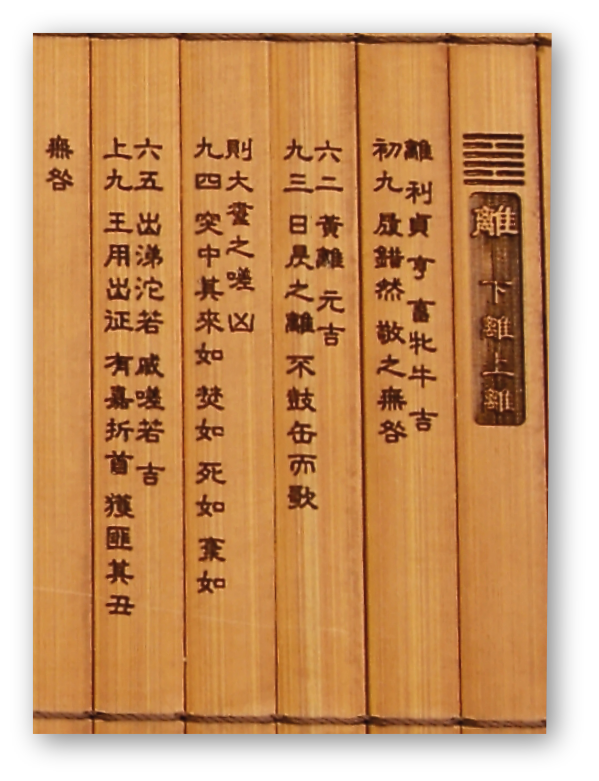 離 下離上離
離 利貞 亨 畜牝牛 吉
初九 履錯然 敬之無咎
六二 黃離 元吉
九三 日昃之離 不鼓缶而歌
則大耋之嗟 凶
九四 突中其來如 焚如 死如 棄如
六五 出涕沱若 戚嗟若 吉
上九 王用出征 有嘉折首 獲匪其丑
無咎